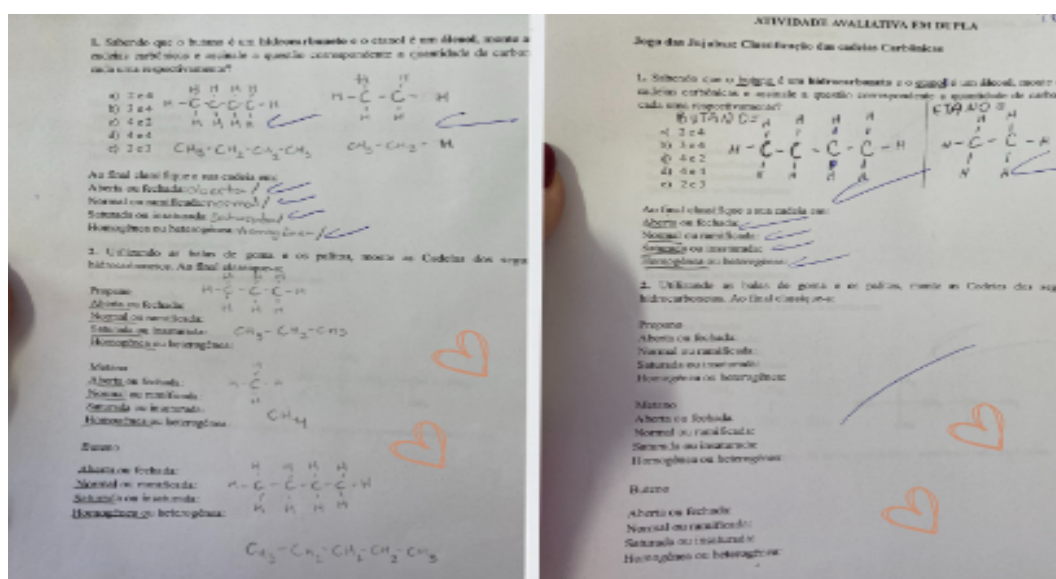 1. Sabendo que o butano é um hidrocarboneto e o etanol é um álcool, monte a
cadeias carbônicas e assinale a questão correspondente a quantidade de carbon
cada uma respectivamente?
a) 2 e 4
b) 3 e 4
c) 4 e 2
d) 4 e 4
e) 2 e 3
H H H H
H-C-C-C-C-H
H H H H
H H
H-C-C-H
H H
CH3-CH2-CH2-CH3
CH3-CH2-H
Ao final classifique a sua cadeia em:
Aberta ou fechada: aberta
Normal ou ramificada: normal
Saturada ou insaturada: Saturada
Homogênea ou heterogênea: homogênea
2. Utilizando as balas de goma e os palitos, monte as Cadeias dos segu
hidrocarbonetos. Ao final classique-s:
Propano
Aberta ou fechada:
Normal ou ramificada:
Saturada ou insaturada:
Homogênea ou heterogênea:
H H H
H-C-C-C-H
H H H
CH3-CH2-CH3
Metano
Aberta ou fechada:
Normal ou ramificada:
Saturada ou insaturada:
Homogênea ou heterogênea:
H
H-C-H
H
CH4
Butano
Aberta ou fechada:
Normal ou ramificada:
Saturada ou insaturada:
Homogênea ou heterogênea:
H H H H
H-C-C-C-C-H
H H H H
CH3-CH2-CH2-CH2-CH3
ATIVIDADE AVALIATIVA EM DUPLA
Jogo das Jujubas: Classificação das cadeias Carbônicas
1. Sabendo que o butano é um hidrocarboneto e o etanol é um álcool, monte
cadeias carbônicas e assinale a questão correspondente a quantidade de carbo
cada uma respectivamente?
a) 2 e 4
b) 3 e 4
c) 4 e 2
d) 4 e 4
e) 2 e 3
BUTANO=
H H H H
H-C-C-C-C-H
H H H H
ETANO=
H H
H-C-C-H
H H
Ao final classifique a sua cadeia em:
Aberta ou fechada:
Normal ou ramificada:
Saturada ou insaturada:
Homogênea ou heterogênea:
2. Utilizando as balas de goma e os palitos, monte as Cadeias dos seg
hidrocarbonetos. Ao final classique-s:
Propano
Aberta ou fechada:
Normal ou ramificada:
Saturada ou insaturada:
Homogênea ou heterogênea:
Metano
Aberta ou fechada:
Normal ou ramificada:
Saturada ou insaturada:
Homogênea ou heterogênea:
Butano
Aberta ou fechada:
Normal ou ramificada:
Saturada ou insaturada:
Homogênea ou heterogênea: